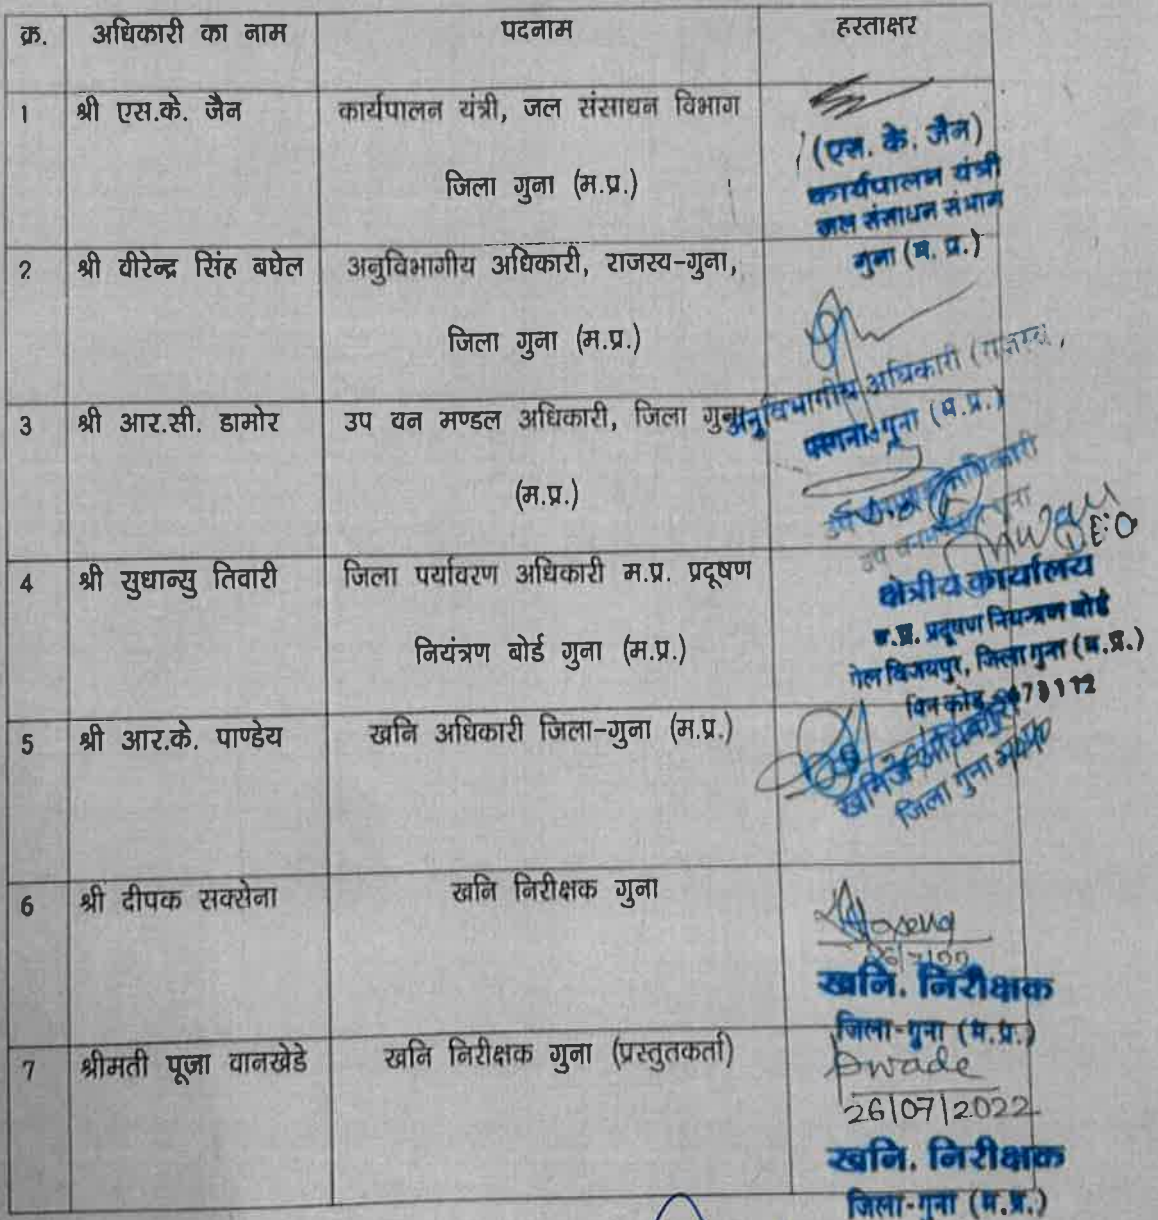 क्र. अधिकारी का नाम पदनाम हस्ताक्षर
1 श्री एस.के. जैन कार्यपालन यंत्री, जल संसाधन विभाग
जिला गुना (म.प्र.)
(एस. के. जैन)
कार्यपालन यंत्री
जल संसाधन संभाग
गुना (म. प्र.)
2 श्री वीरेन्द्र सिंह बघेल अनुविभागीय अधिकारी, राजस्व-गुना,
जिला गुना (म.प्र.)
अनुविभागीय अधिकारी (राजस्व)
परगना-गुना (म.प्र.)
3 श्री आर.सी. डामोर उप वन मण्डल अधिकारी, जिला गुना
(म.प्र.)
4 श्री सुधान्सु तिवारी जिला पर्यावरण अधिकारी म.प्र. प्रदूषण
नियंत्रण बोर्ड गुना (म.प्र.)
क्षेत्रीय कार्यालय
म.प्र. प्रदूषण नियन्त्रण बोर्ड
गेल विजयपुर, जिला गुना (म.प्र.)
पिन कोड
5 श्री आर.के. पाण्डेय खनि अधिकारी जिला-गुना (म.प्र.)
जिला गुना
6 श्री दीपक सक्सेना खनि निरीक्षक गुना
खनि. निरीक्षक
जिला-गुना (म.प्र.)
7 श्रीमती पूजा वानखेडे खनि निरीक्षक गुना (प्रस्तुतकर्ता)
26/07/2022
खनि. निरीक्षक
जिला-गुना (म.प्र.)